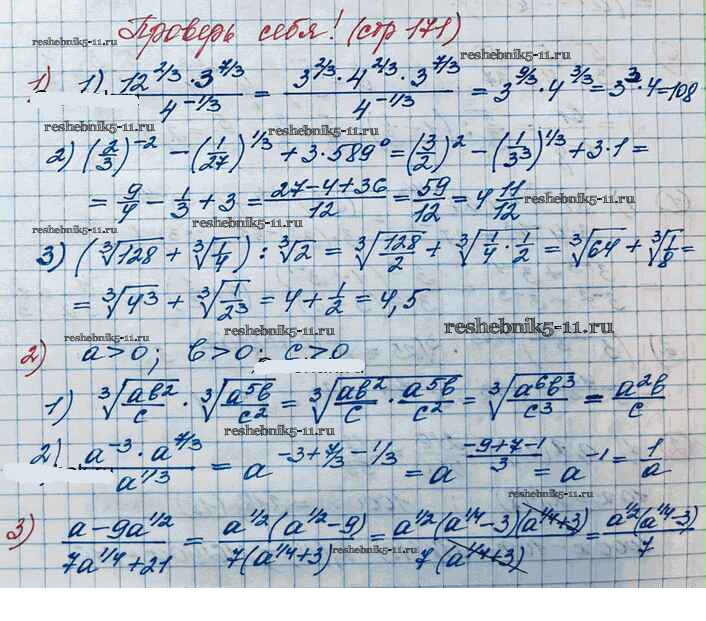 Проверь себя! (стр 171)
reshebnik5-11.ru reshebnik5-11.ru
1) 1) 12^(2/3) · 3^(7/3) / 4^(-1/3) = 3^(2/3) · 4^(2/3) · 3^(7/3) / 4^(-1/3) = 3^(9/3) · 4^(3/3) = 3^3 · 4 = 108
reshebnik5-11.ru reshebnik5-11.ru reshebnik5-11.ru
2) (2/3)^(-2) - (1/27)^(1/3) + 3 · 589^0 = (3/2)^2 - (1/3^3)^(1/3) + 3 · 1 =
= 9/4 - 1/3 + 3 = (27-4+36)/12 = 59/12 = 4 11/12
reshebnik5-11.ru reshebnik5-11.ru reshebnik5-11.ru
3) (∛128 + ∛(1/4)) : ∛2 = ∛(128/2) + ∛(1/4 · 1/2) = ∛64 + ∛(1/8) =
reshebnik5-11.ru
= ∛(4^3) + ∛(1/2^3) = 4 + 1/2 = 4,5
reshebnik5-11.ru
reshebnik5-11.ru
2) a>0; b>0; c>0
1) ∛(ab^2/c) · ∛(a^5b/c^2) = ∛(ab^2/c · a^5b/c^2) = ∛(a^6b^3/c^3) = a^2b/c
reshebnik5-11.ru reshebnik5-11.ru
2) a^(-3) · a^(7/3) / a^(1/3) = a^(-3+7/3-1/3) = a^((-9+7-1)/3) = a^(-1) = 1/a
reshebnik5-11.ru reshebnik5-11.ru
3) (a-9a^(1/2)) / (7a^(1/4)+21) = a^(1/2)(a^(1/2)-9) / 7(a^(1/4)+3) = a^(1/2)(a^(1/4)-3)(a^(1/4)+3) / 7(a^(1/4)+3) = a^(1/2)(a^(1/4)-3) / 7
reshebnik5-11.ru